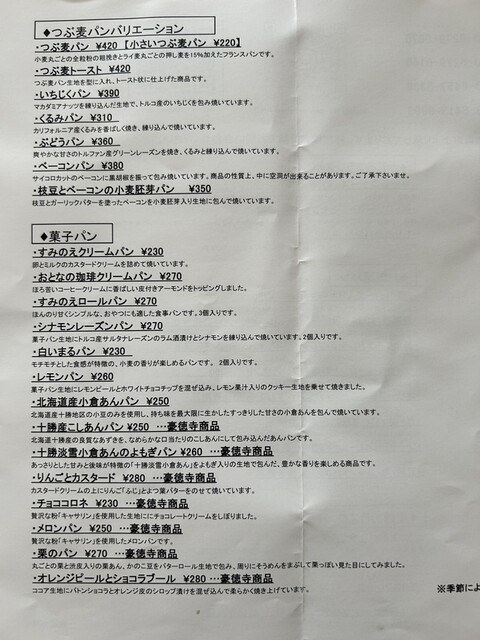 ◆つぶ麦パンバリエーション
・つぶ麦パン ¥420 【小さいつぶ麦パン ¥220】
小麦丸ごとの全粒粉の粗挽きとライ麦丸ごとの押し麦を15%加えたフランスパンです。
・つぶ麦トースト ¥420
つぶ麦パン生地を型に入れ、トースト状に仕上げた商品です。
・いちじくパン ¥390
マカダミアナッツを練り込んだ生地で、トルコ産のいちじくを包み焼いています。
・くるみパン ¥310
カリフォルニア産くるみを香ばしく焼き、練り込んで焼いています。
・ぶどうパン ¥360
爽やかな甘さのトルファン産グリーンレーズンを焼き、くるみと練り込んで焼いています。
・ベーコンパン ¥380
サイコロカットのベーコンに黒胡椒を振って包み焼いています。商品の性質上、中に空洞が出来ることがあります。ご了承下さいませ。
・枝豆とベーコンの小麦胚芽パン ¥350
枝豆とガーリックバターを塗ったベーコンを小麦胚芽入り生地に包んで焼いています。
◆菓子パン
・すみのえクリームパン ¥230
卵とミルクのカスタードクリームを詰めて焼いています。
・おとなの珈琲クリームパン ¥270
ほろ苦いコーヒークリームに香ばしい皮付きアーモンドをトッピングしました。
・すみのえロールパン ¥270
ほんのり甘くシンプルな、おやつにも適した食事パンです。3個入りです。
・シナモンレーズンパン ¥270
菓子パン生地にトルコ産サルタナレーズンのラム酒漬けとシナモンを練り込んで焼いています。2個入りです。
・白いまるパン ¥230
モチモチとした食感が特徴の、小麦の香りが楽しめるパンです。 2個入りです。
・レモンパン ¥260
菓子パン生地にレモンピールとホワイトチョコチップを混ぜ込み、レモン果汁入りのクッキー生地を乗せて焼きました。
・北海道産小倉あんパン ¥250
北海道産十勝地区の小豆のみを使用し、持ち味を最大限に生かしたすっきりした甘さの小倉あんを包んで焼いています。
・十勝産こしあんパン ¥250 …豪徳寺商品
北海道十勝産の良質なあずきを、なめらかな口当たりのこしあんにして包み込んだあんパンです。
・十勝淡雪小倉あんのよもぎパン ¥260 …豪徳寺商品
あっさりとした甘みと後味が特徴の「十勝淡雪小倉あん」をよもぎ入りの生地で包んだ、豊かな香りを楽しめる商品です。
・りんごとカスタード ¥280 …豪徳寺商品
カスタードクリームの上にりんご「ふじ」とよつ葉バターをのせて焼いています。
・チョココロネ ¥230 …豪徳寺商品
贅沢な粉「キャサリン」を使用した生地ににチョコレートクリームをしぼりました。
・メロンパン ¥250 …豪徳寺商品
贅沢な粉「キャサリン」を使用したメロンパンです。
・栗のパン ¥270 …豪徳寺商品
丸ごとの栗と渋皮入りの栗あん、かのこ豆をバターロール生地で包み、周りにそうめんをまぶして栗っぽい見た目にしてみました。
・オレンジピールとショコラブール ¥280 …豪徳寺商品
ココア生地にバトンショコラとオレンジ皮のシロップ漬けを混ぜ込んで柔らかく焼き上げています。
※季節によ